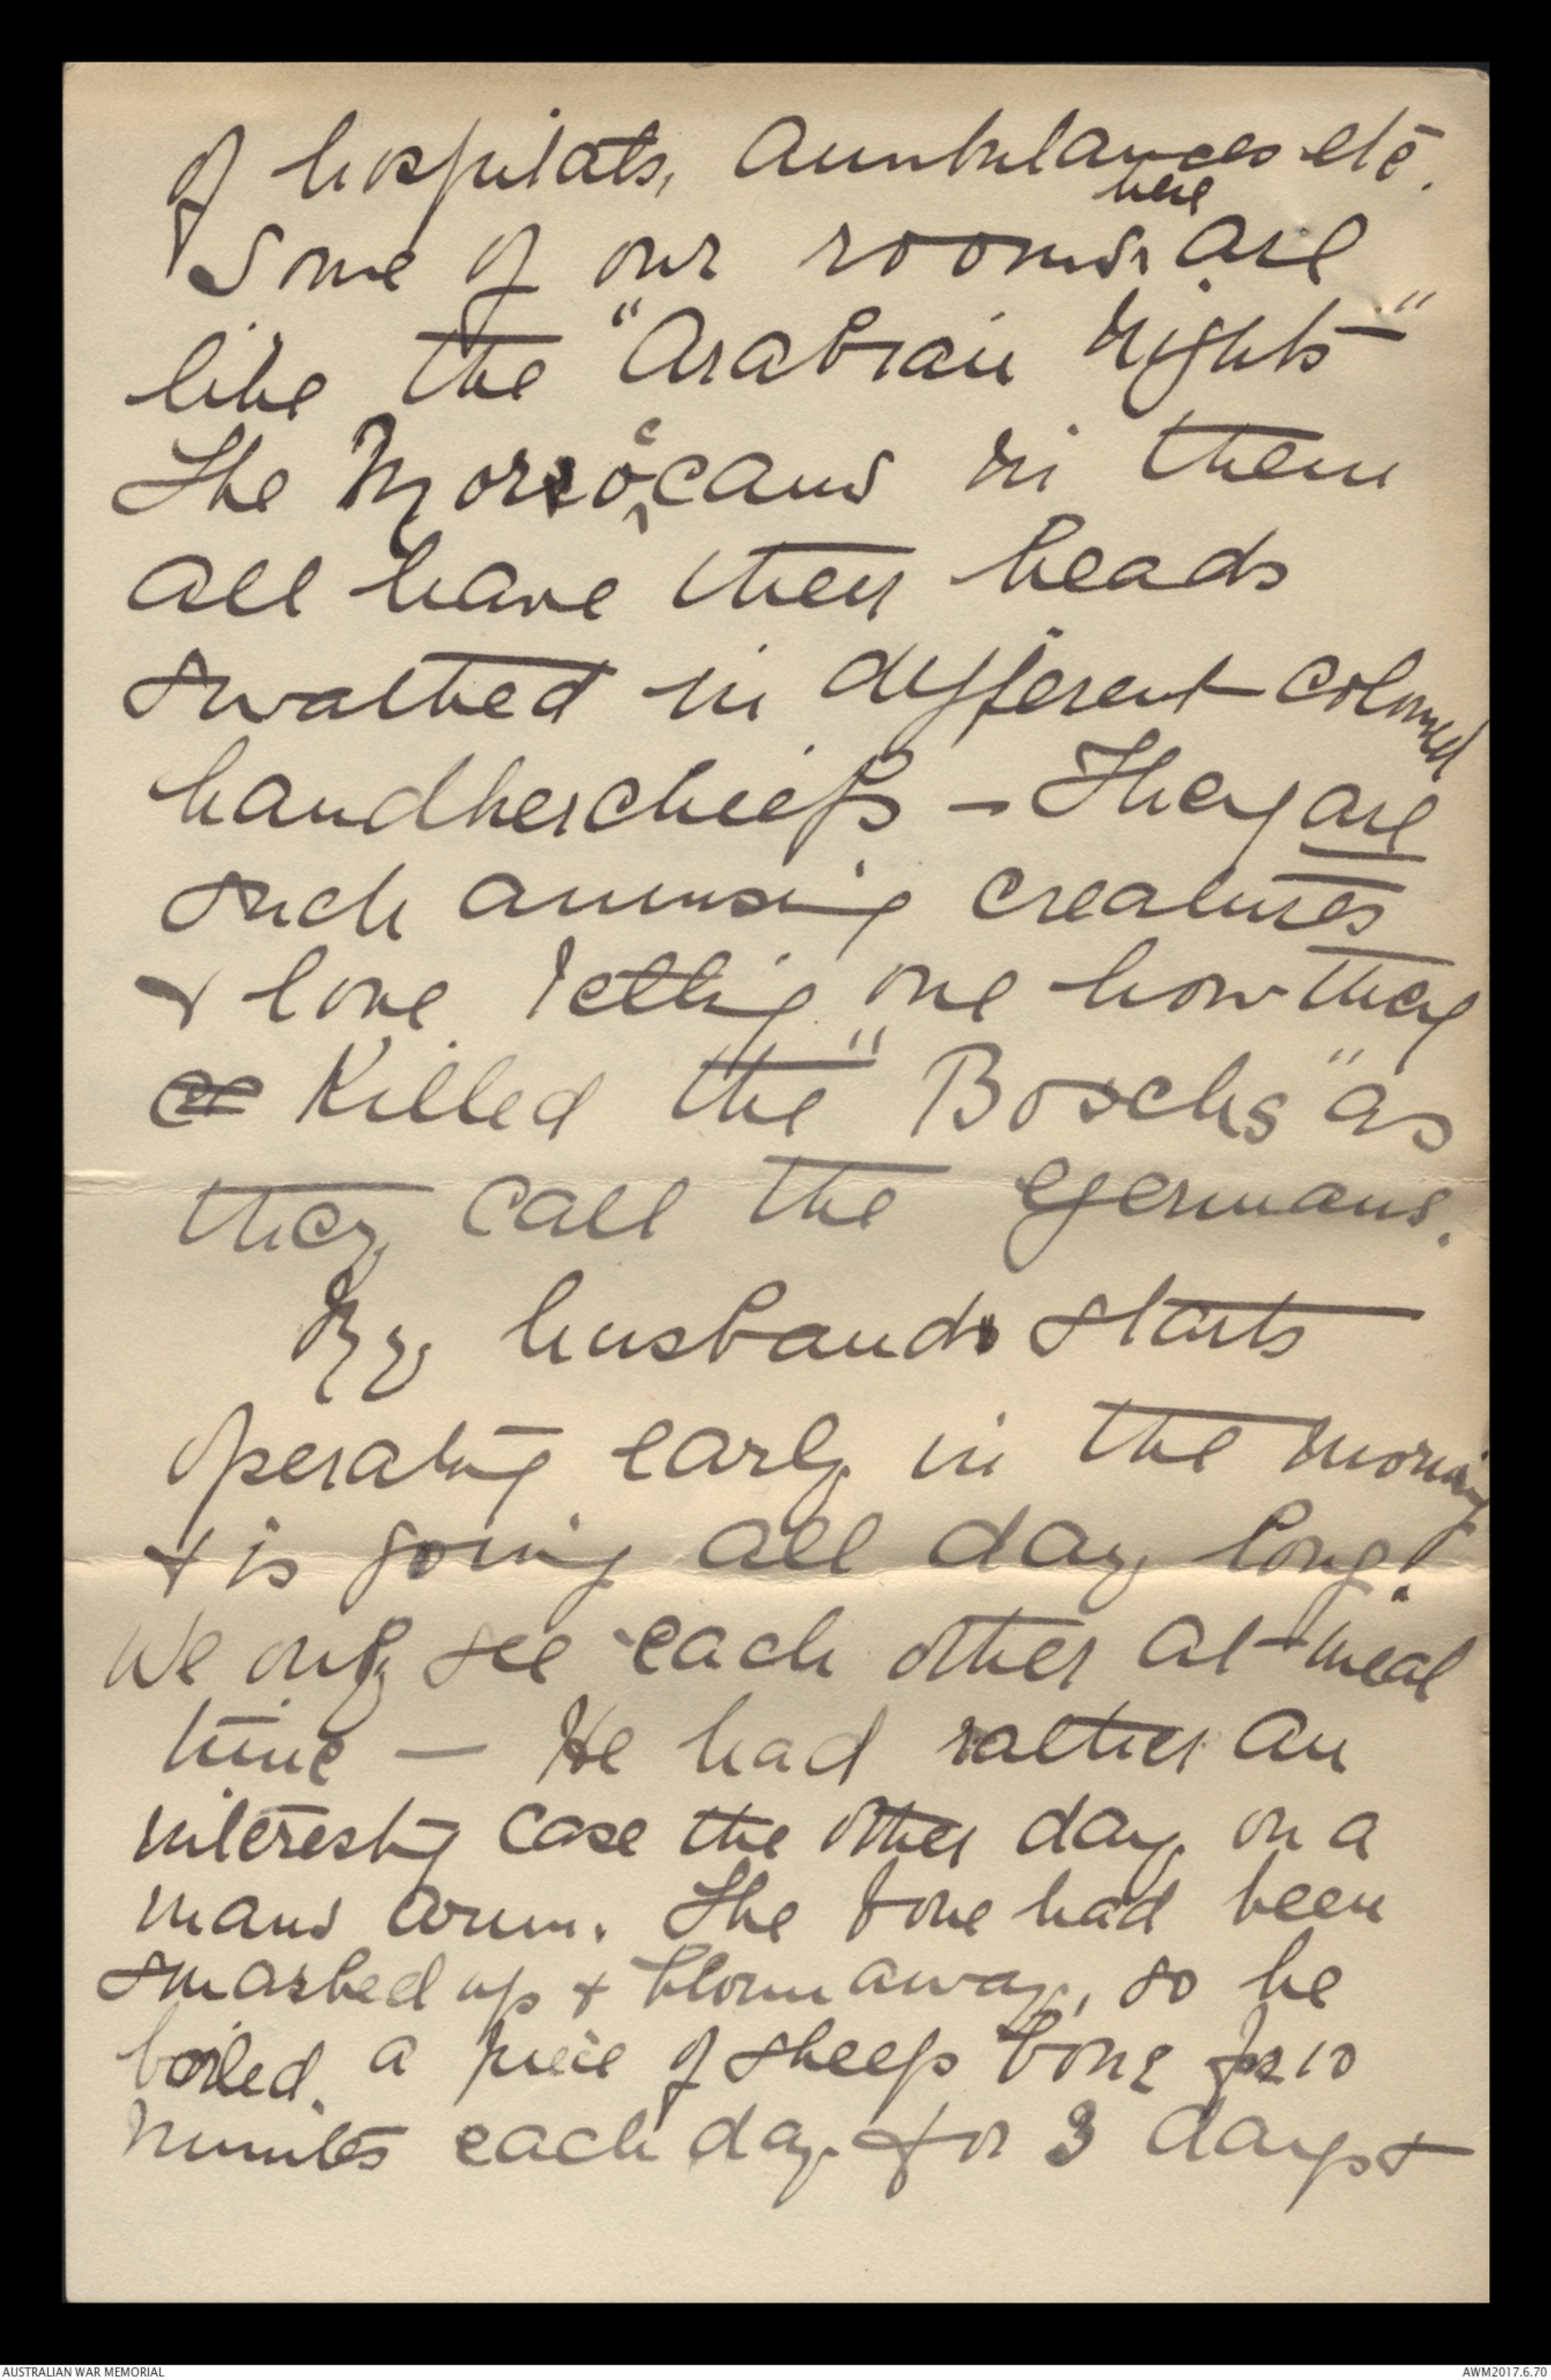 of hospitals, Ambulances etc.
Some of our rooms here are
like the "Arabian Nights"
The Moroccans in them
all have their heads
swathed in different coloured
handkercheifs - They are
such amusing creatures
& love telling one how they
killed the "Boschs" as
they call the Germans.
My husband starts
operating early in the morning
& is going all day long!
We only see each other at meal
time — He had rather an
interesting case the other day on a
mans arm. The bone had been
smashed up & blown away, so he
boiled a piece of sheeps bone for 10
minutes each day for 3 days &
AUSTRALIAN WAR MEMORIAL
AWM2017.6.70